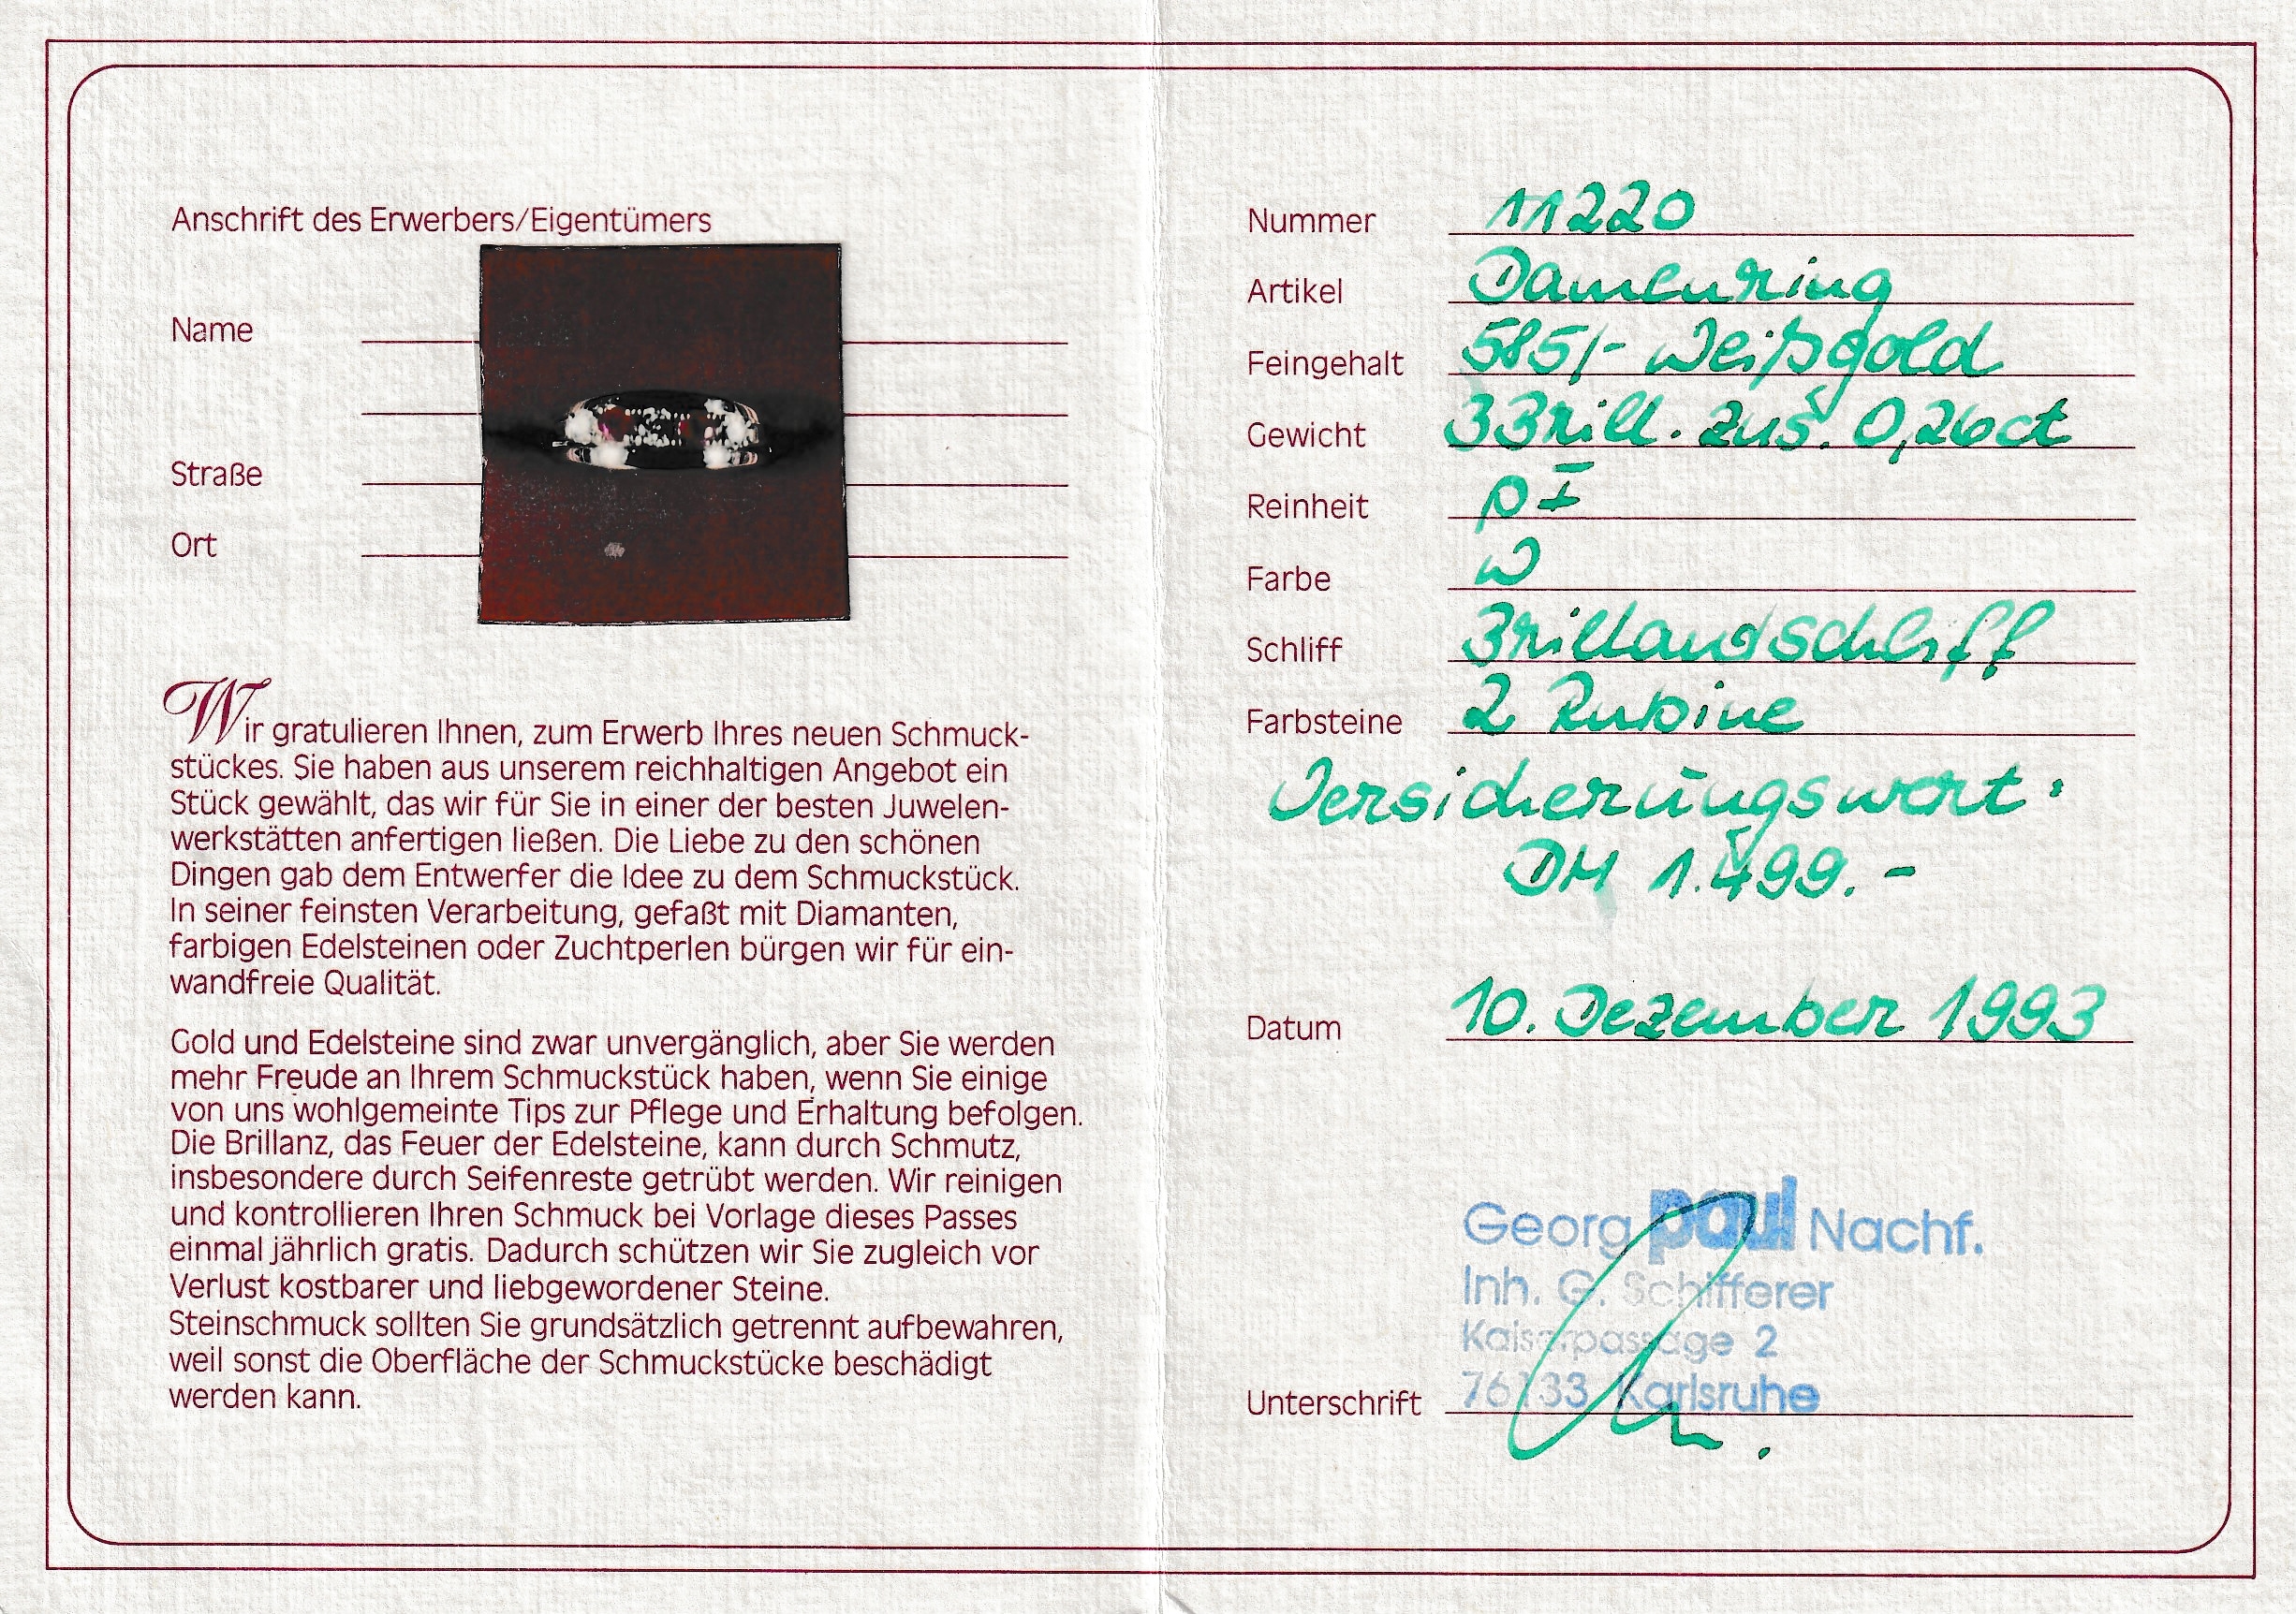 Anschrift des Erwerbers/Eigentümers
Name
Straße
Ort
Wir gratulieren Ihnen, zum Erwerb Ihres neuen Schmuck-
stückes. Sie haben aus unserem reichhaltigen Angebot ein
Stück gewählt, das wir für Sie in einer der besten Juwelen-
werkstätten anfertigen ließen. Die Liebe zu den schönen
Dingen gab dem Entwerfer die Idee zu dem Schmuckstück.
In seiner feinsten Verarbeitung, gefaßt mit Diamanten,
farbigen Edelsteinen oder Zuchtperlen bürgen wir für ein-
wandfreie Qualität.
Gold und Edelsteine sind zwar unvergänglich, aber Sie werden
mehr Freude an Ihrem Schmuckstück haben, wenn Sie einige
von uns wohlgemeinte Tips zur Pflege und Erhaltung befolgen.
Die Brillanz, das Feuer der Edelsteine, kann durch Schmutz,
insbesondere durch Seifenreste getrübt werden. Wir reinigen
und kontrollieren Ihren Schmuck bei Vorlage dieses Passes
einmal jährlich gratis. Dadurch schützen wir Sie zugleich vor
Verlust kostbarer und liebgewordener Steine.
Steinschmuck sollten Sie grundsätzlich getrennt aufbewahren,
weil sonst die Oberfläche der Schmuckstücke beschädigt
werden kann.
Nummer 11220
Artikel Damenring
Feingehalt 585/- Weißgold
Gewicht 3 Brill. zus. 0,26 ct
Reinheit PI
Farbe W
Schliff Brillandschliff
Farbsteine 2 Rubine
Versicherungswert:
DM 1.499.-
Datum 10. Dezember 1993
Georg paul Nachf.
Inh. G. Schifferer
Kaiserpassage 2
76133 Karlsruhe
Unterschrift